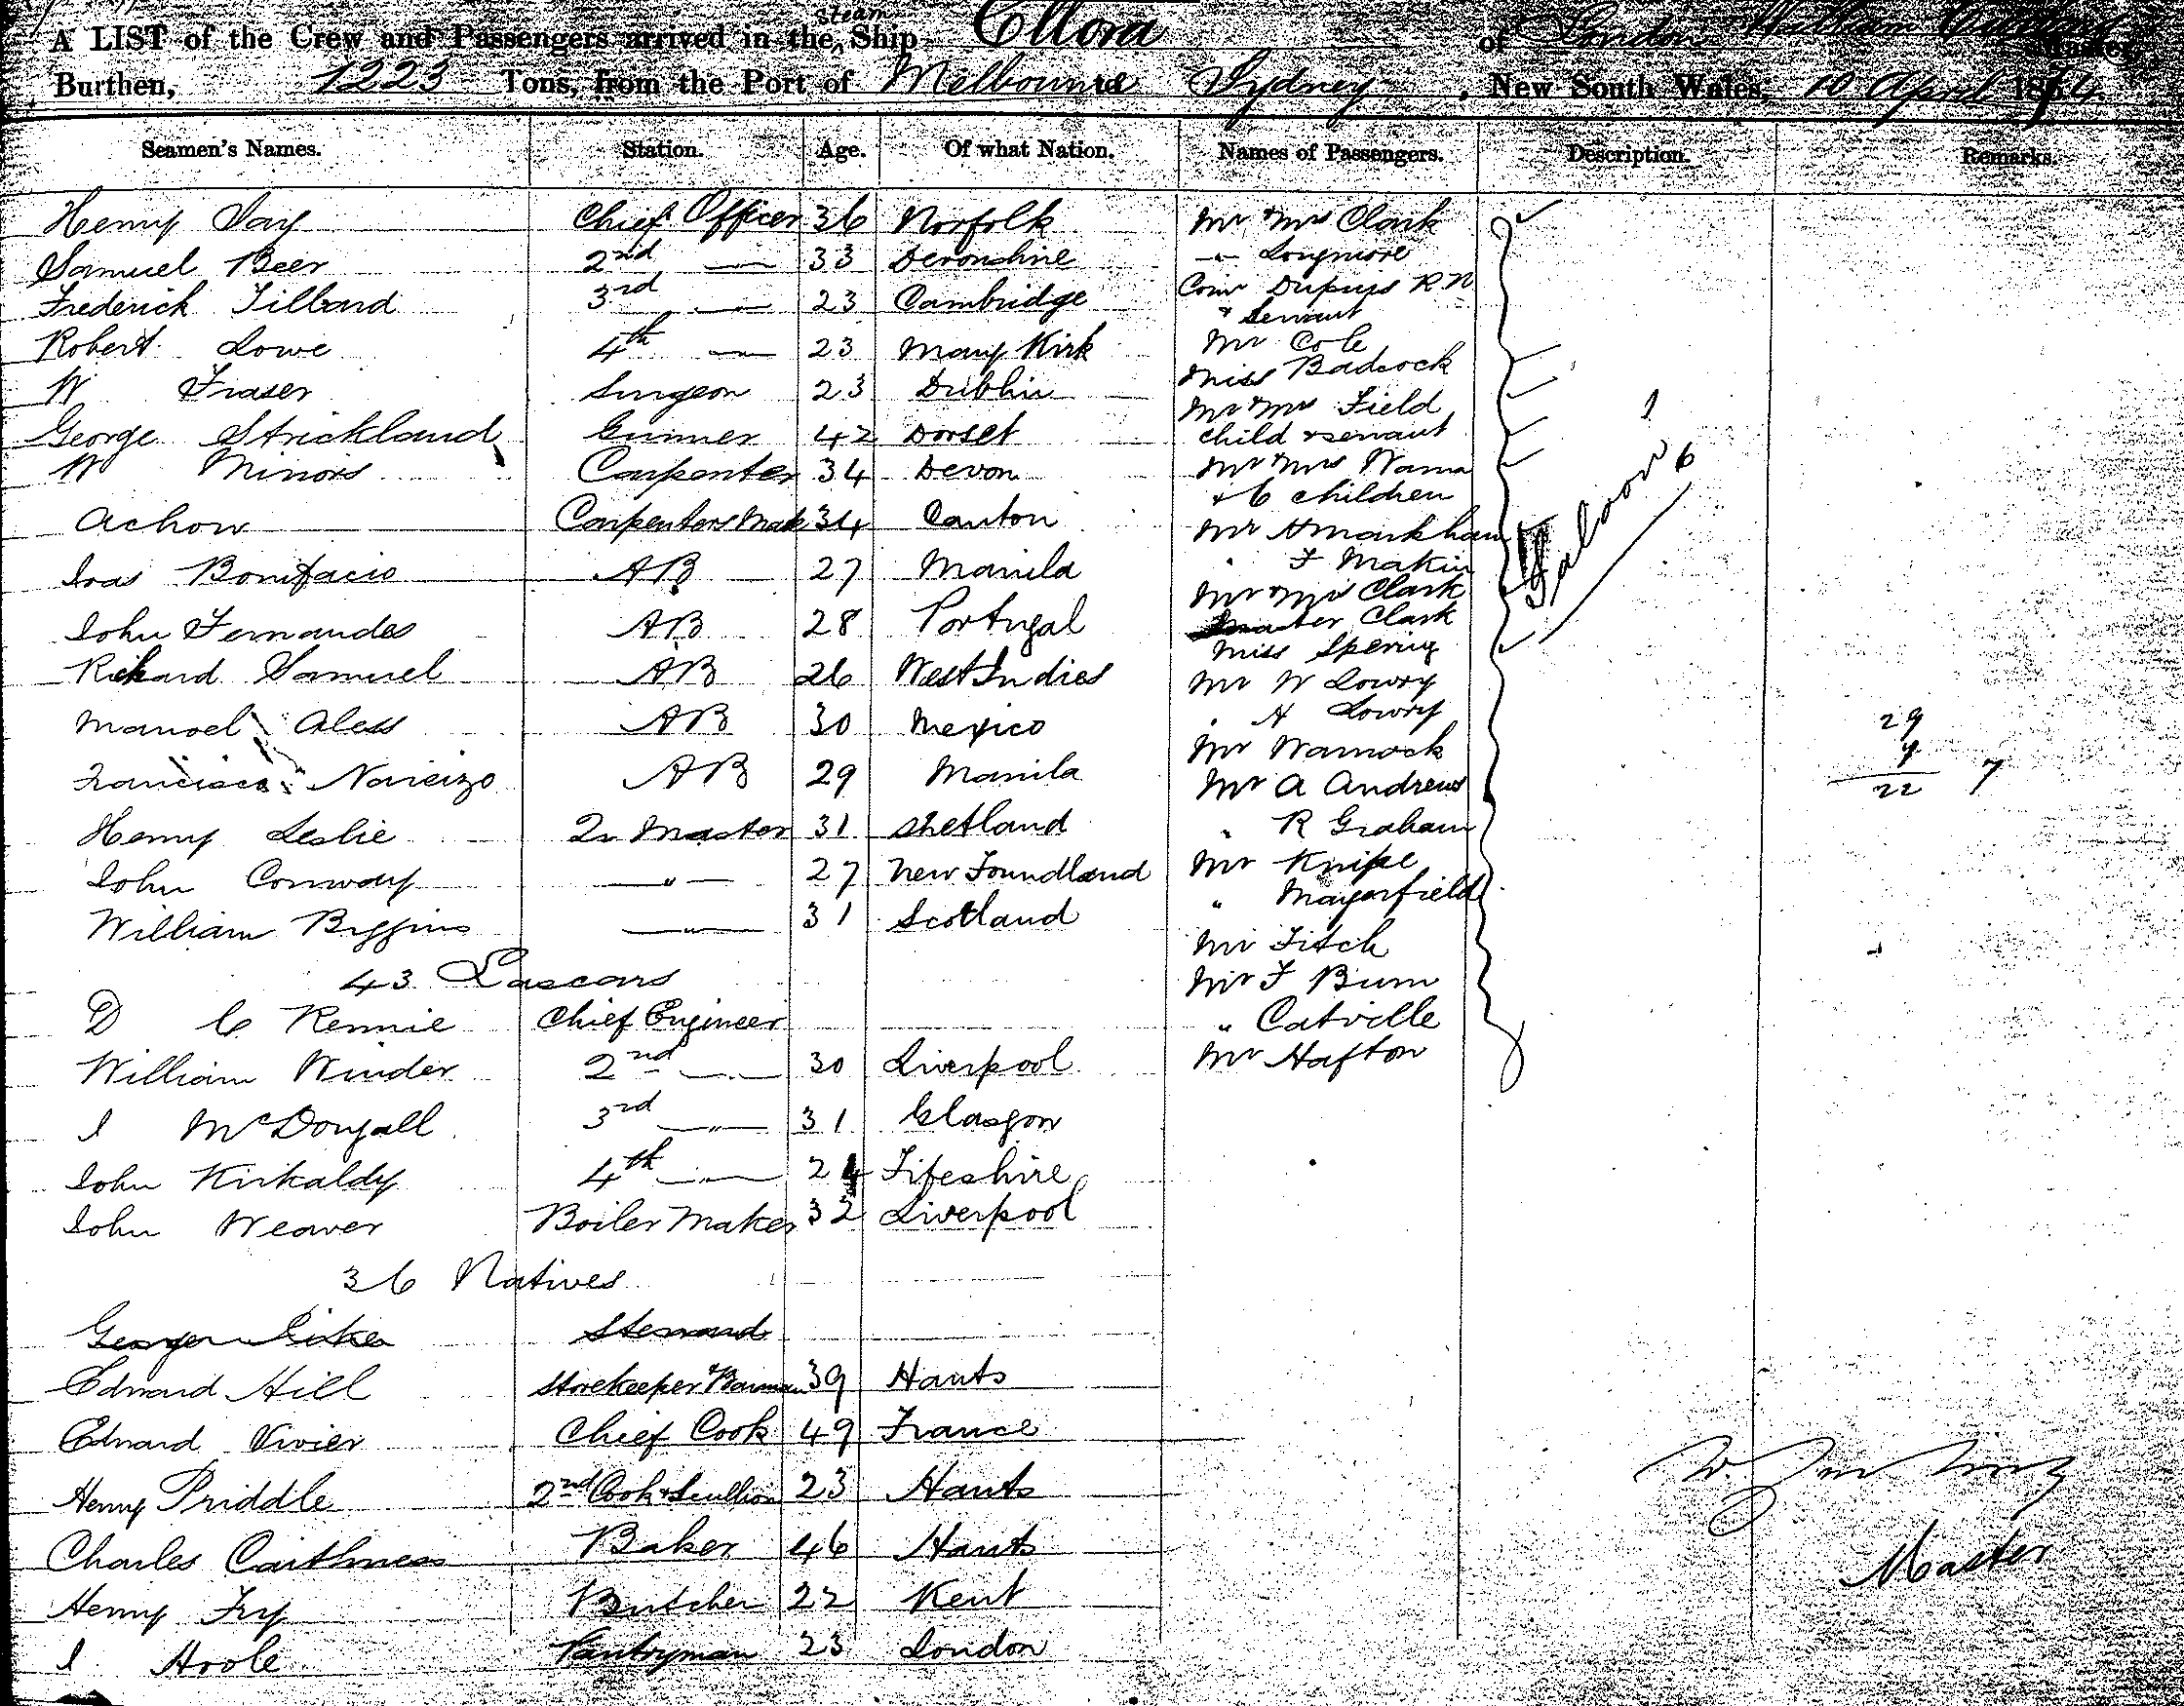 A LIST of the Crew and Passengers arrived in the Steam Ship Ellora of London William Master,
Burthen, 1223 Tons, from the Port of Melbourne to Sydney, New South Wales, 10 April 1874.
Seamen's Names. Station. Age. Of what Nation. Names of Passengers. Description. Remarks.
Henry Chief Officer 36 Norfolk Mr & Mrs Clark
Samuel Beer 2nd " 33 Devonshire " Longmore
Frederick Tilbard 3rd " 23 Cambridge Com Dupuis R N
& Servant
Robert Lowe 4th " 23 Mary Kirk Mr Cole
Miss Badcock
W Fraser Surgeon 23 Dublin Mr & Mrs Field
George Strickland Gunner 42 Dorset child & servant
W Minors Carpenter 34 Devon Mr & Mrs
& 6 children
Achow Carpenters Mate 34 Canton Mr H Markham
Bonifacio AB 27 Manila " F Makin
Mr & Mrs Clark
John Fernandes AB 28 Portugal Master Clark
Miss
Richard Samuel AB 26 West Indies Mr W Lowry
Manoel Aless AB 30 Mexico " H Lowry
Mr Warnock
Francisco Narcizo AB 29 Manila Mr A Andrews
Henry Leslie Qr Master 31 Shetland " R Graham
John Conway " 27 New Foundland Mr Knipe
" Mayerfield
William Biggins " 31 Scotland
Mr Fitch
43 Lascars Mr F
D C Rennie Chief Engineer " Catville
William Winder 2nd " 30 Liverpool Mr Hafton
I McDougall 3rd " 31 Glasgow
John Kirkaldy 4th " 24 Fifeshire
John Weaver Boiler Maker 32 Liverpool
36 Natives
George Steward
Edward Hill Storekeeper & Barman 39 Hants
Edward Vivier Chief Cook 49 France
Henry Priddle 2nd Cook & Scullion 23 Hants
Charles Caithness Baker 46 Hants
Henry Fry Butcher 22 Kent
I Hoole Pantryman 23 London
Saloon
1
6
29
7
22 7
Master